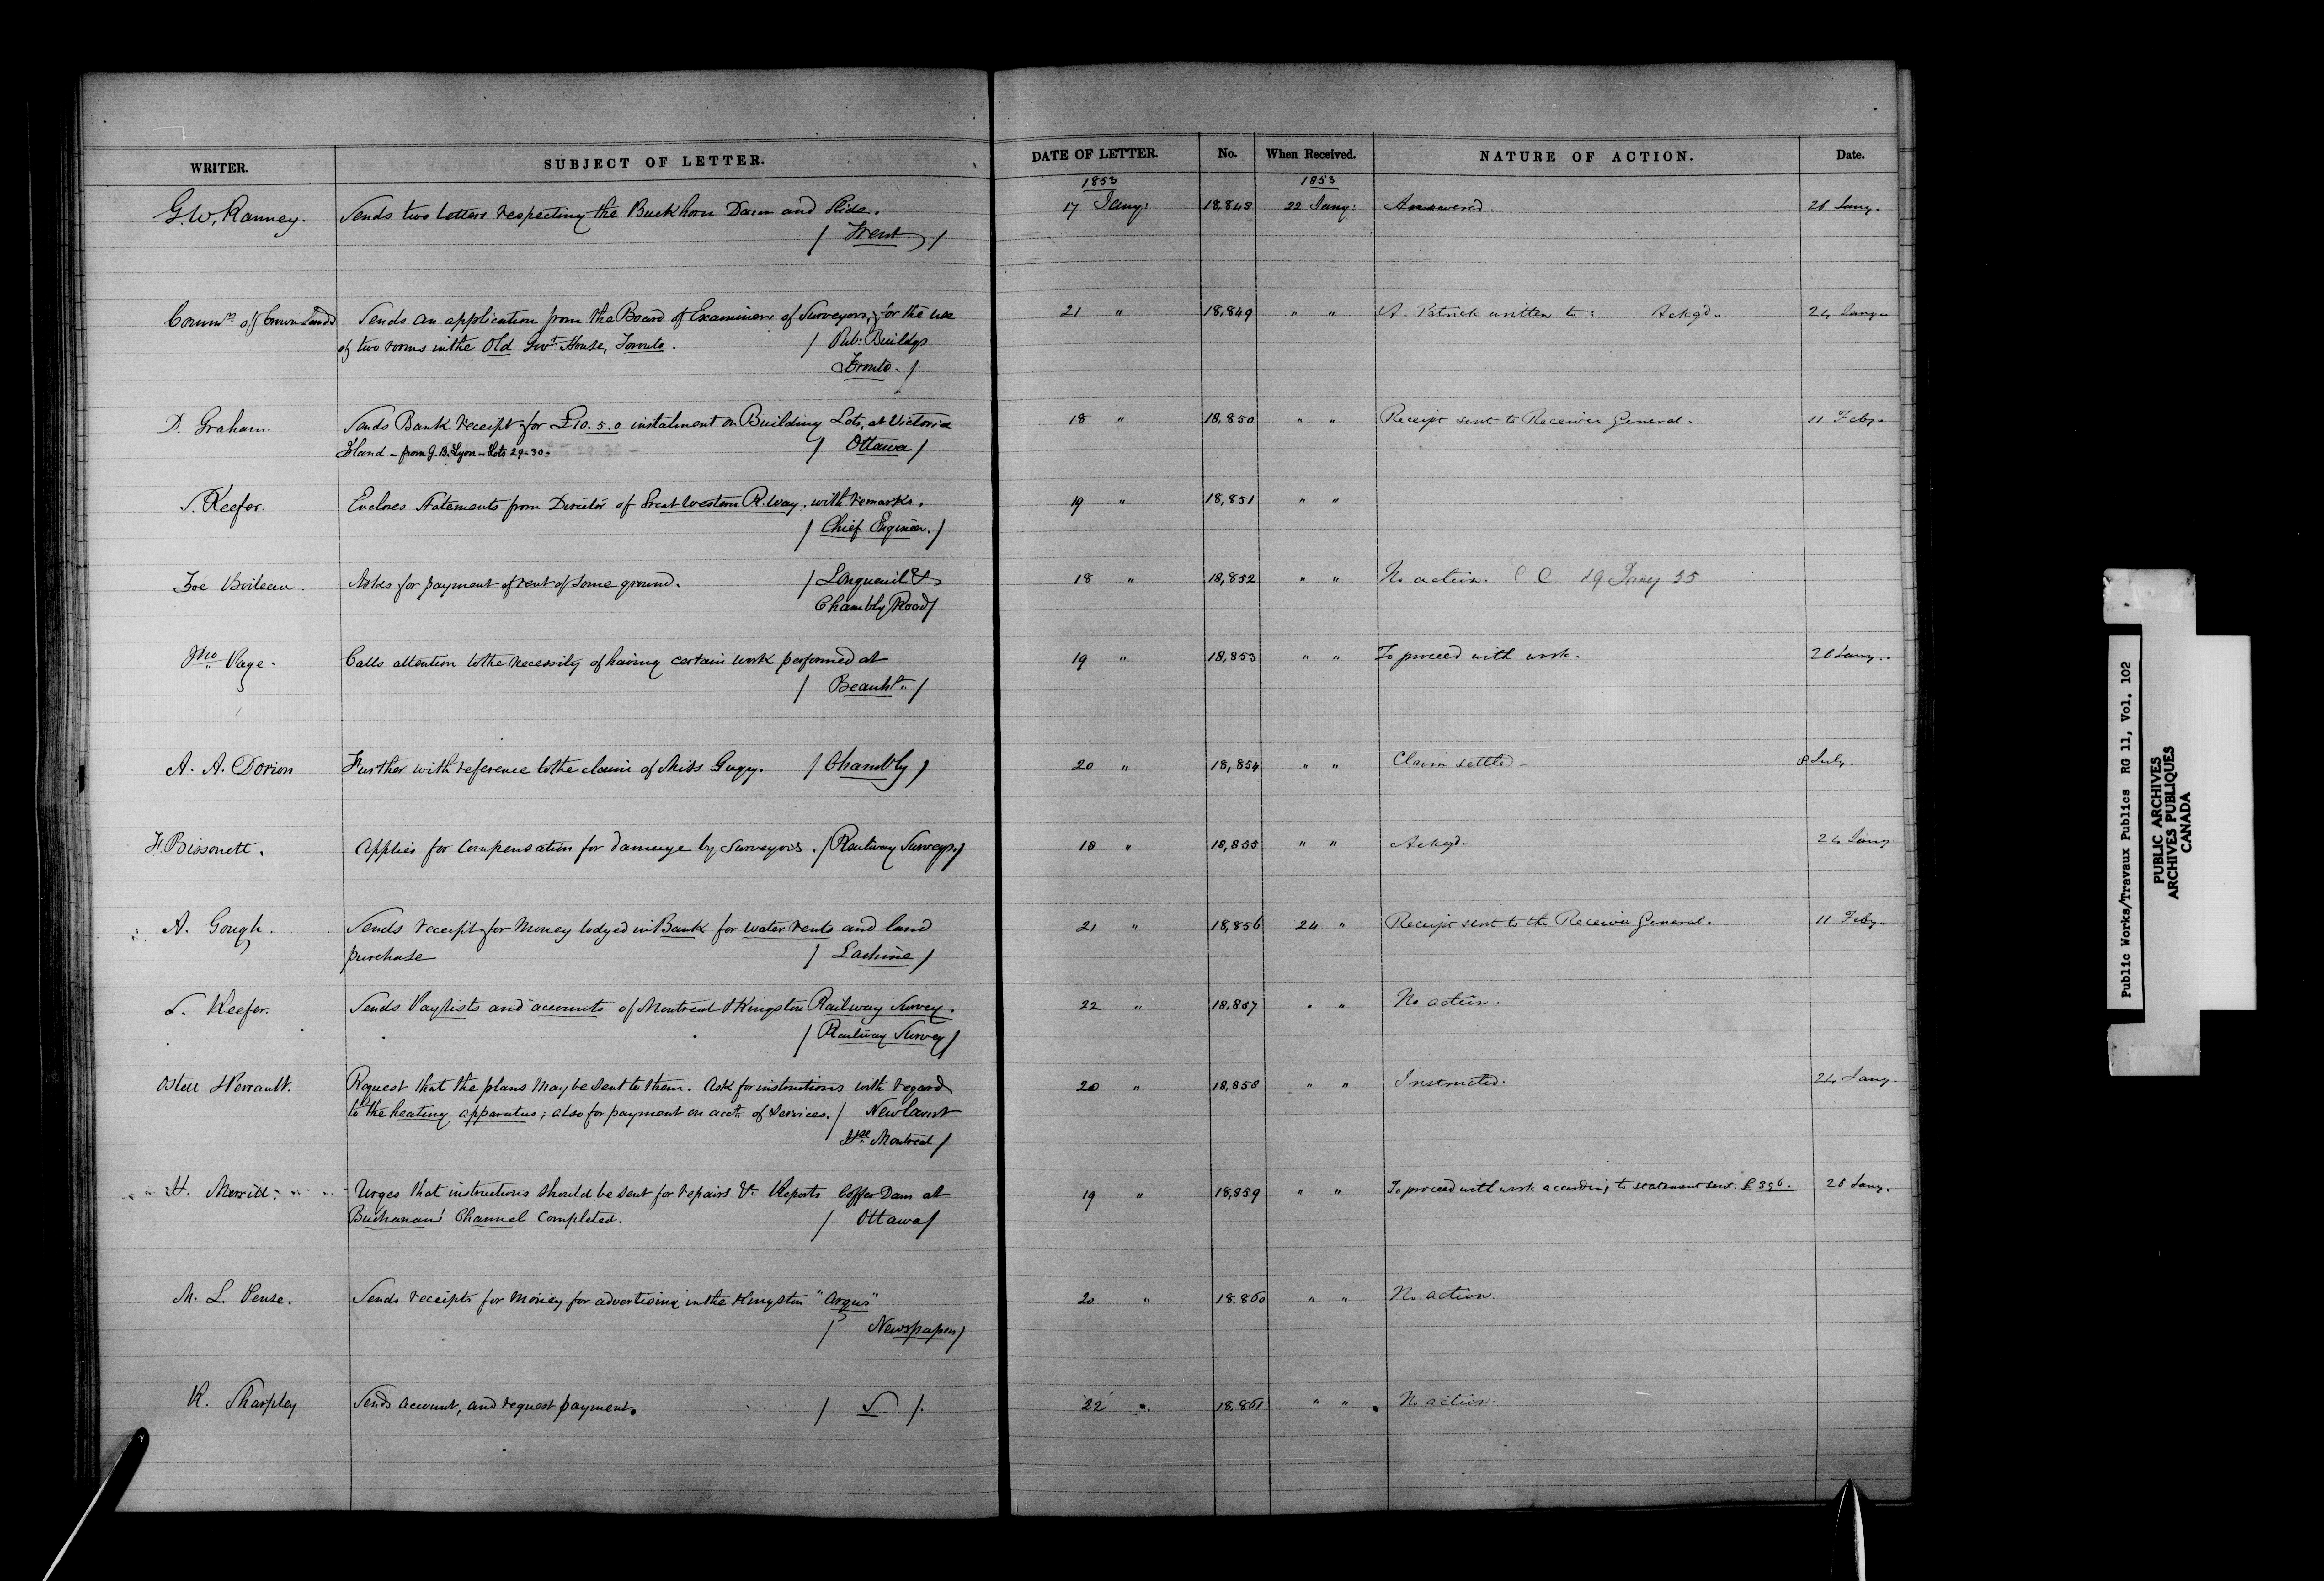 WRITER. SUBJECT OF LETTER. DATE OF LETTER. No. When Received. NATURE OF ACTION. Date.
1853 1853
G.W. Ranney. Sends two letters respecting the Buckhorn Dam and Slide. 17 Jany: 18,848 22 Jany: Answered. 26 Jany.
/ Trent /
Commr. of Crown Lands Sends an application from the Board of Examiners of Surveyors, for the use 21 " 18,849 " " A. Patrick written to: Ackgd. 24 Jany
of two rooms in the Old Govt. House, Toronto. / Pub: Buildgs
Toronto. /
D. Graham. Sends Bank receipt for £10.5.0 instalment on Building Lots, at Victoria 18 " 18,850 " " Receipt sent to Receiver General. 11 Feby.
Island - from G.B. Lyon - Lots 29-30- / Ottawa /
S. Keefer. Encloses Statements from Director of Great Western R.way. with remarks. 19 " 18,851 " "
/ Chief Engineer. /
Zoe Boileau. Asks for payment of rent of some ground. / Longueuil & 18 " 18,852 " " No action. C C 19 Jany 55
Chambly Road /
Jno Page. Calls attention to the necessity of having certain work performed at 19 " 18,853 " " To proceed with work. 26 Jany.
/ Beauhs. /
A. A. Dorion Further with reference to the claim of Miss Gugy. / Chambly / 20 " 18,854 " " Claim settled - 8 July.
F. Bissonett. Applies for compensation for damage by surveyors. / Railway Surveys. / 18 " 18,855 " " Ackgd. 24 Jany
A. Gough. Sends receipt for money lodged in Bank for water rents and land 21 " 18,856 24 " Receipt sent to the Receiver General. 11 Feby.
purchase / Lachine /
S. Keefer. Sends Paylists and accounts of Montreal & Kingston Railway Survey. 22 " 18,857 " " No action.
/ Railway Survey /
Ostell & Perrault. Request that the plans may be sent to them. Ask for instructions with regard 20 " 18,858 " " Instructed. 24 Jany
to the heating apparatus; also for payment on acct. of services. / New Court
Hse Montreal /
H. Merrill. Urges that instructions should be sent for repairs &c. Reports Coffer Dam at 19 " 18,859 " " To proceed with work according to statement sent. £396. 26 Jany.
Buchanans' Channel completed. / Ottawa /
M. L. Pense. Sends receipts for money for advertising in the Kingston "Argus" 20 " 18.860 " " No action.
/ Newspapers /
R. Sharpley Sends account, and request payment. / S /. 22 " 18.861 " " No action.
Public Works/Travaux Publics RG 11, Vol. 102
PUBLIC ARCHIVES
ARCHIVES PUBLIQUES
CANADA